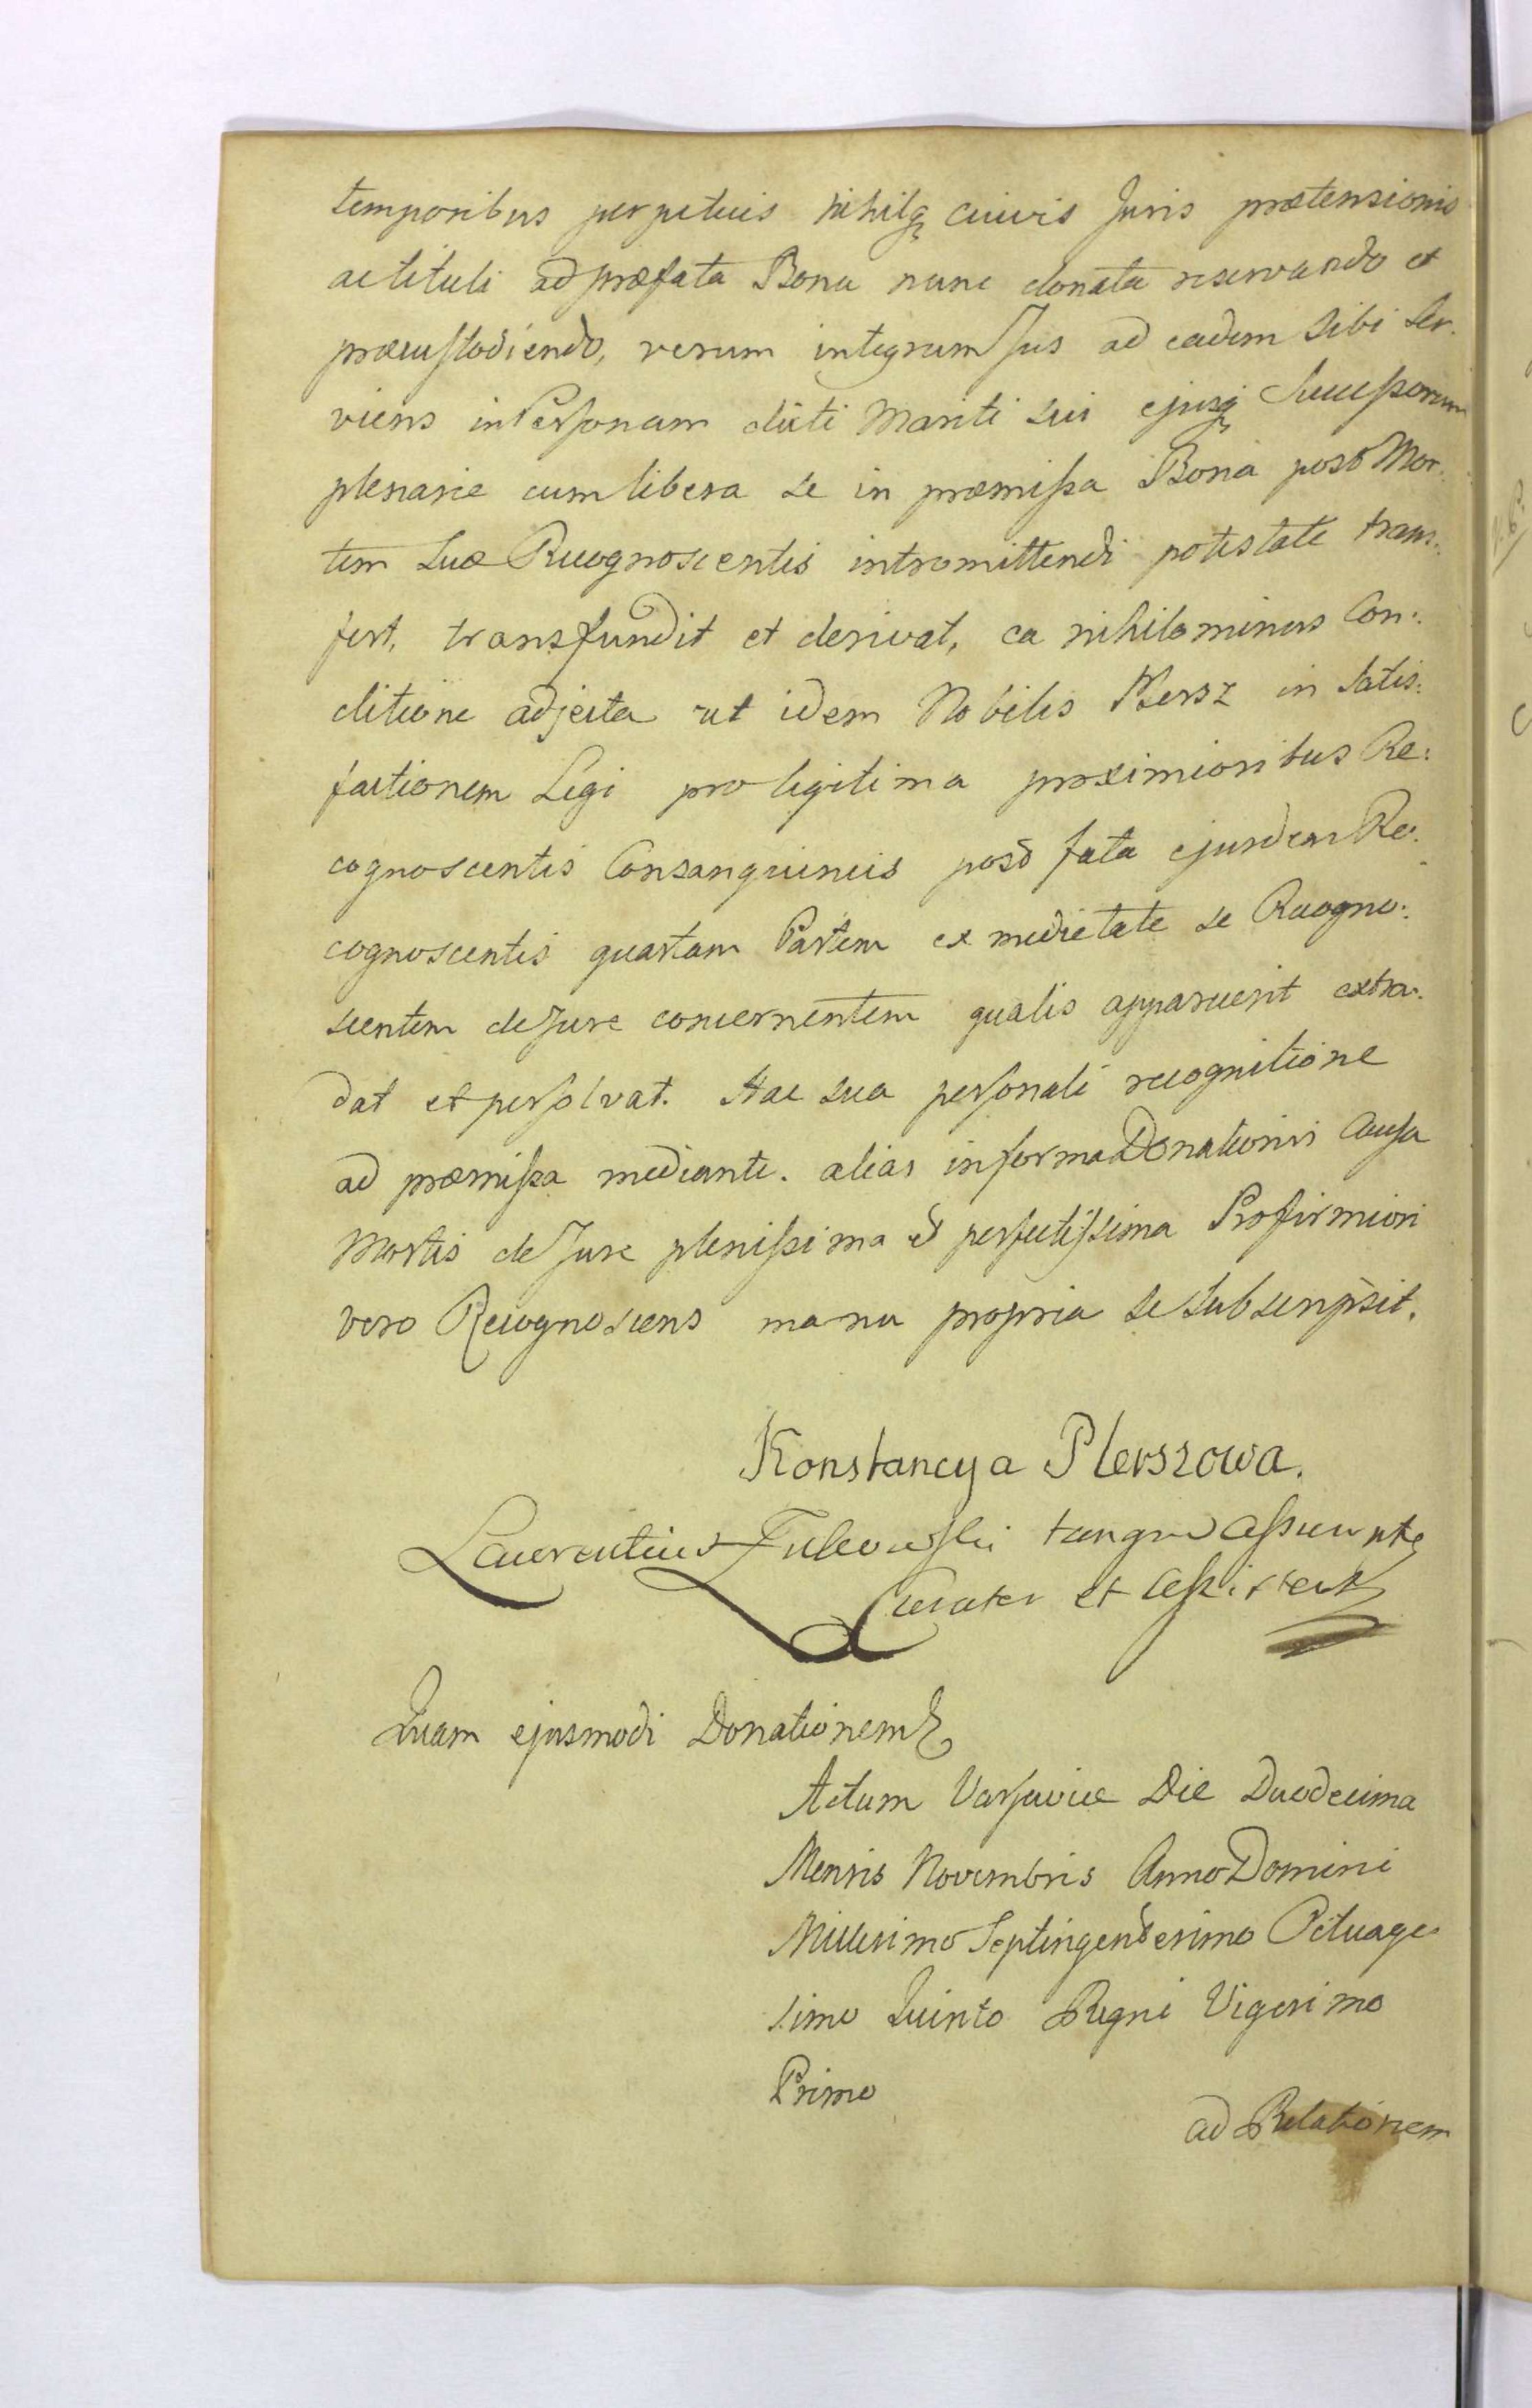 temporibus perpetuis nihilq cuivis Juris prætensionis
ac tituli ad præfata Bona nunc donata reservando et
præcustodiendo, verum integrum Jus ad eadem sibi ser:
viens in Personam dicti Mariti sui ejusq Successorum
plenarie cum libera se in præmissa Bona post Mor:
tem suæ Recognoscentis intromittendi potestate trans:
fert, transfundit et derivat, ea nihilominus Con:
ditione adjecta ut idem Nobilis Plersz in satis:
factionem Legi pro legitima proximioribus Re:
cognoscentis Consanguineis post fata ejusdem Re:
cognoscentis quartam Partem ex medietate se Recogno:
scentem de Jure concernentem qualis apparuerit extra:
dat et persolvat. Hac sua personali recognitione
ad præmissa mediante. alias in forma Donationis Causa
Mortis de Jure plenissima et perfectissima Pro firmiori
vero Recognoscens manu propria se subscripsit.
Konstancya Plerszowa.
Laurentius tanqm assumpts
Curator et assistens
Quam ejusmodi Donationem
Actum Varsaviæ Die Duodecima
Mensis Novembris Anno Domini
Millesimo Septingentesimo Octuage
simo Quinto Regni Vigesimo
Primo
ad Relationem